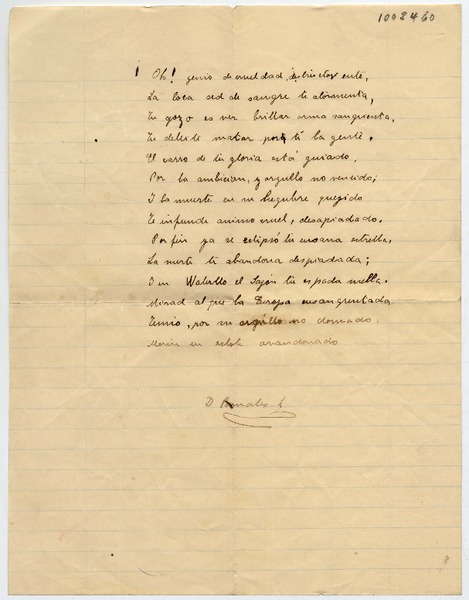 1008460
¡Oh! genio de crueldad,
La loca sed de sangre te atormenta,
Tu gozo es ver brillar arma sangrienta,
Tu deleite matar por tí la gente.
El carro de tu gloria está guiado,
Por la ambicion, y orgullo no vencido;
I la muerte en su lugubre quegido
Te infunde animo cruel, desapiadado.
Por fin ya se eclipsó tu insana estrella,
La suerte te abandona despiadada;
I en Waterllo el Sajón tu espada mella.
Mirad al que la Europa ensangrentada
Temió, por su orgullo no domado,
Morir en islote abandonado
D